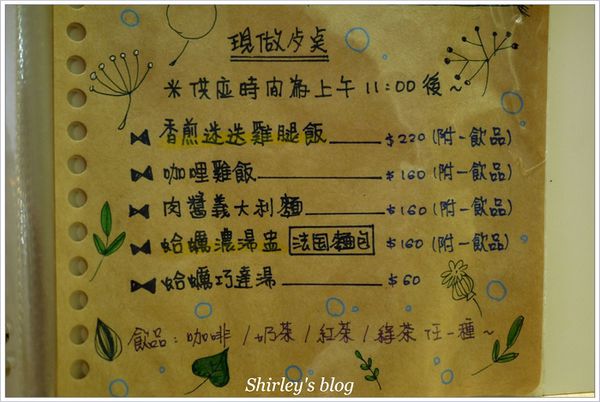 現做歺桌
米供应時間為上午11:00後~
香煎迷迭雞腿飯 $220 (附一飲品)
咖哩雞飯 $160 (附一飲品)
肉醬義大利麵 $160 (附一飲品)
蛤蠣濃湯盅 法国麵包 $160 (附一飲品)
蛤蠣巧達湯 $60
飲品:咖啡/奶茶/紅茶/綠茶 任一種~
Shirley's blog